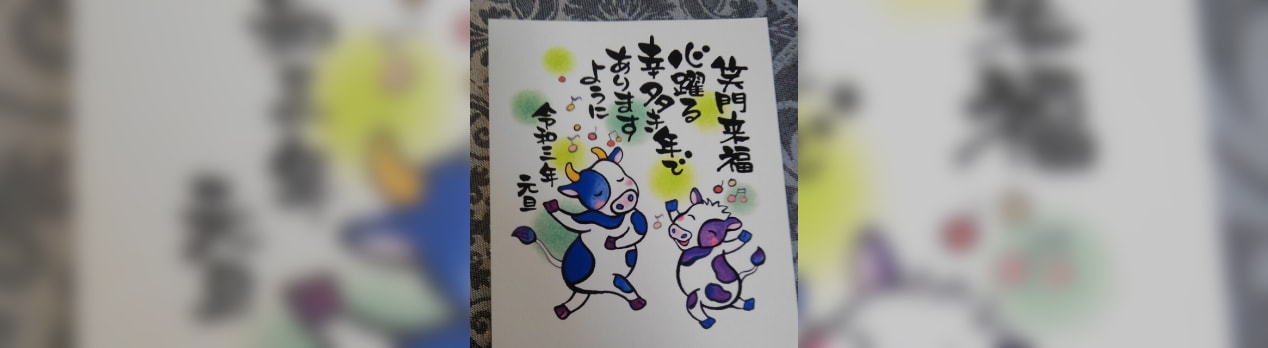 笑門来福
心躍る
幸多き年で
あります
ように
令和三年
元旦